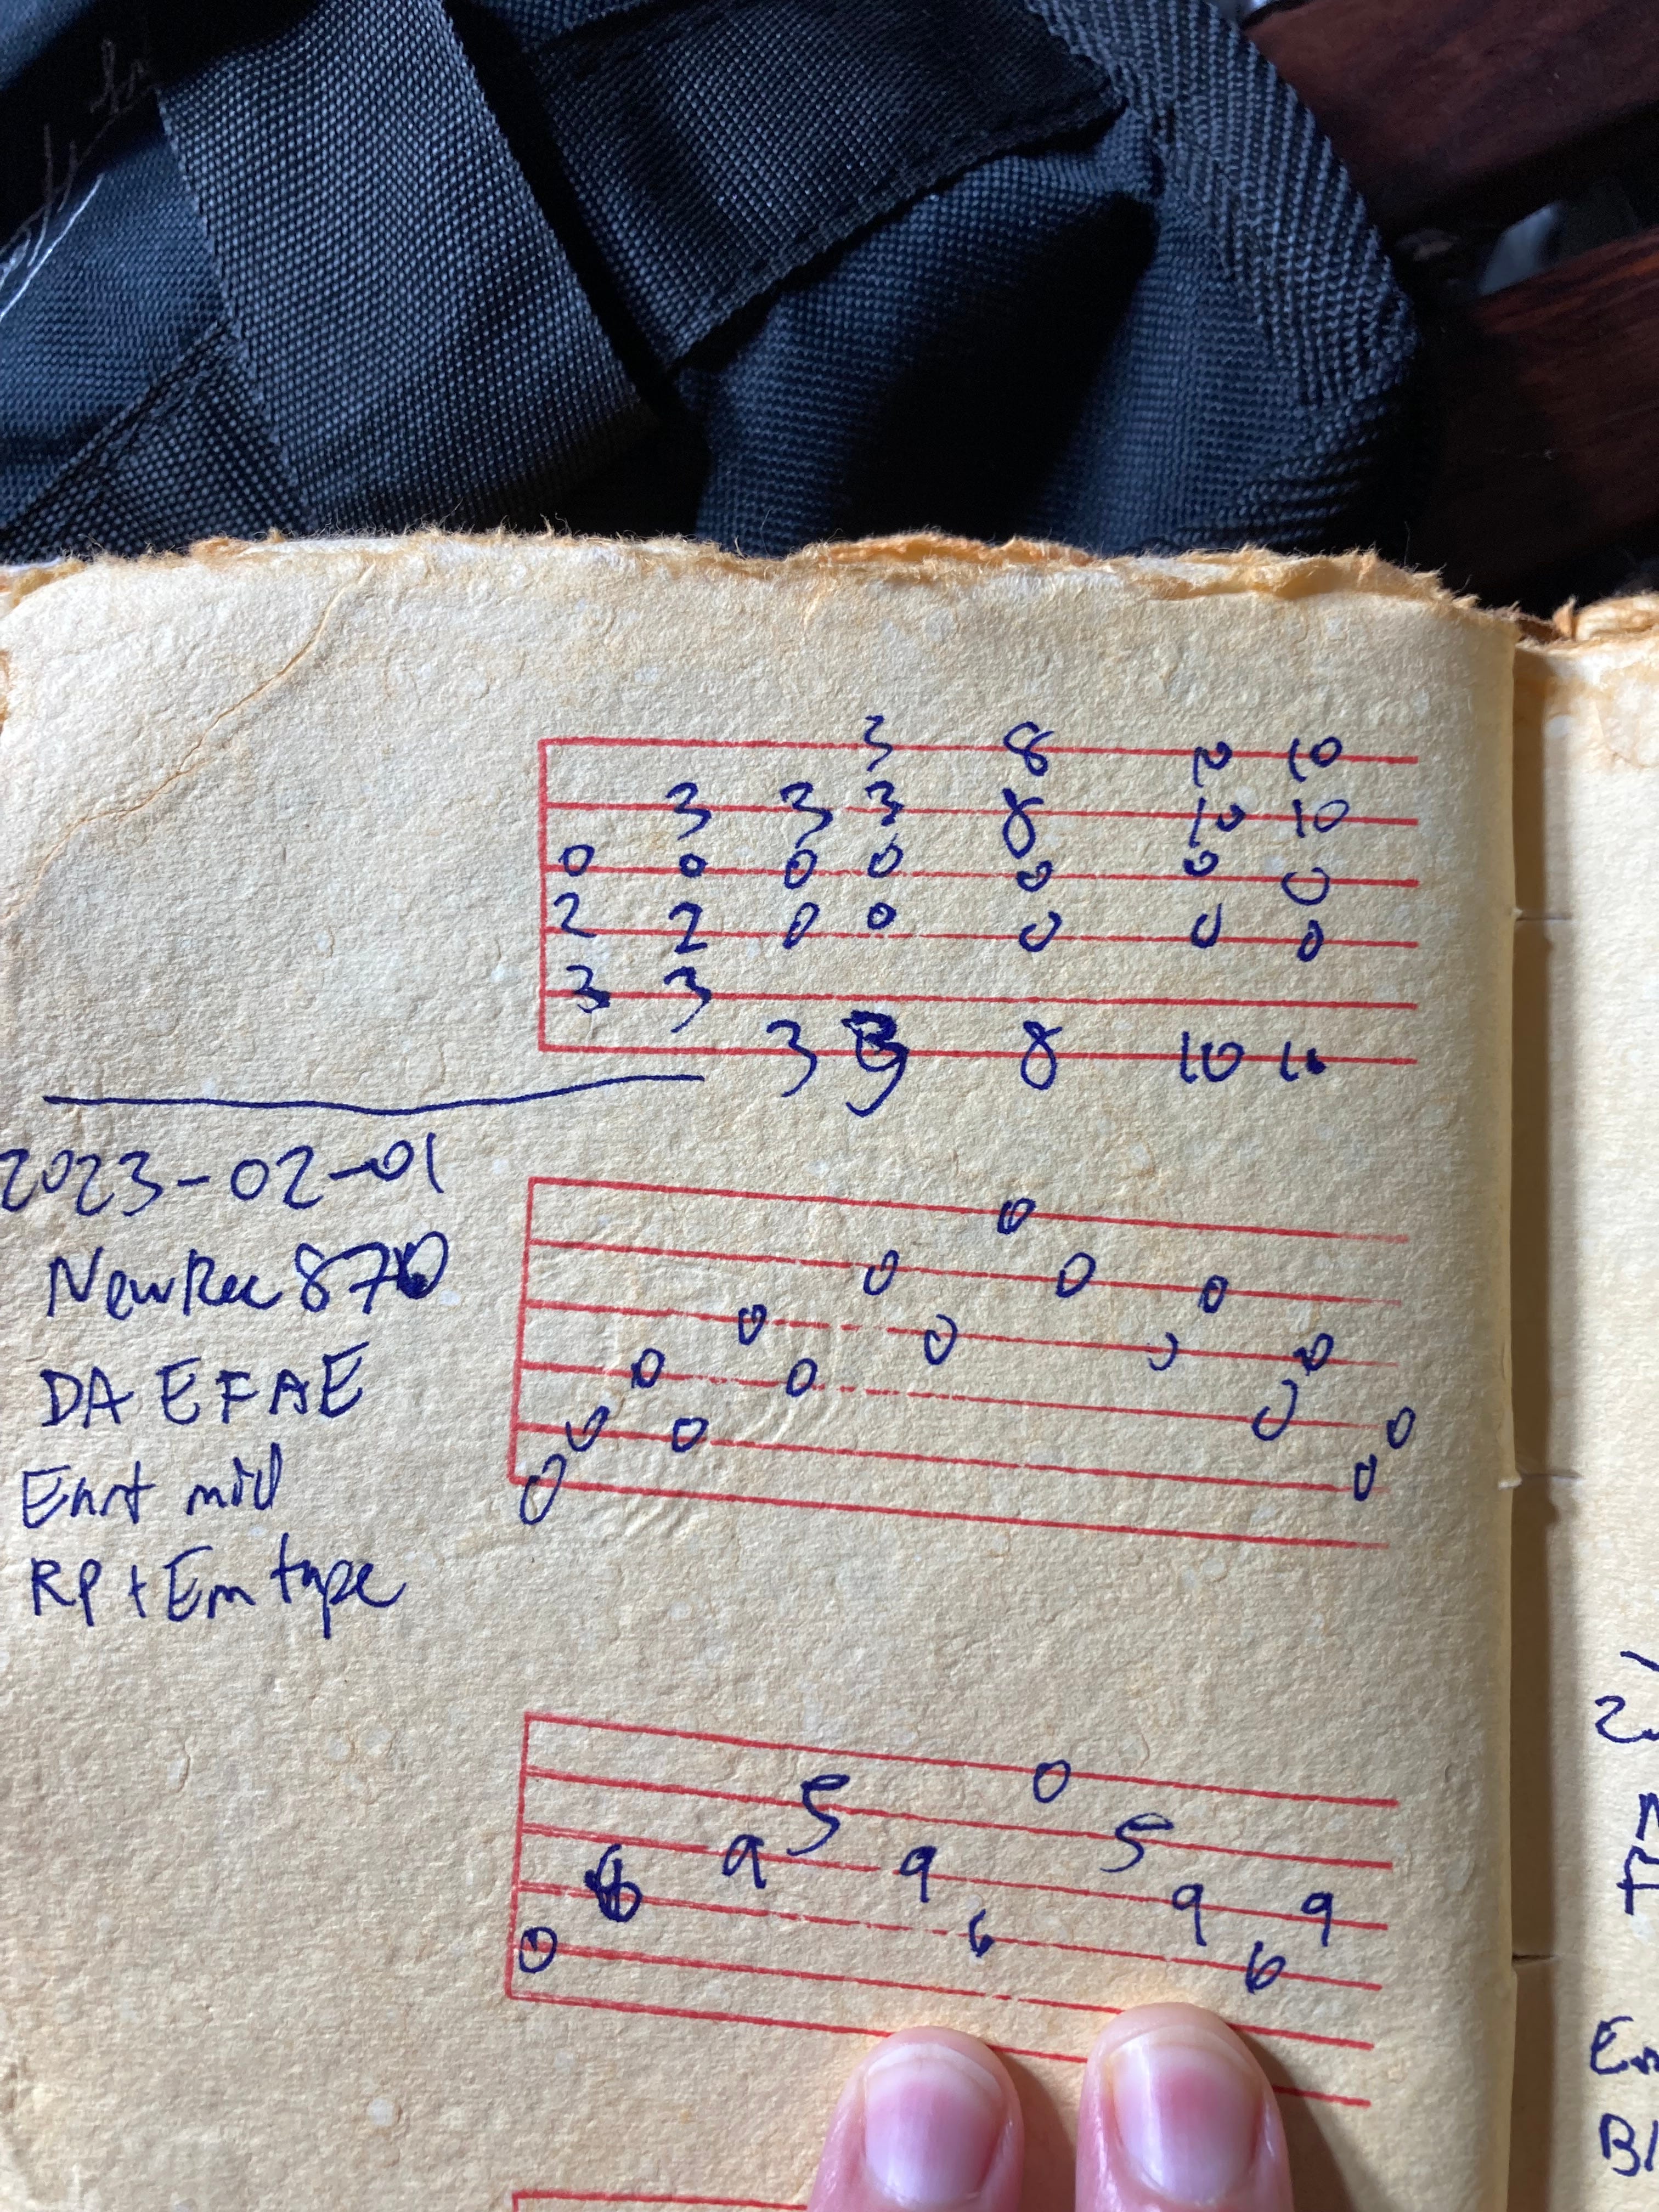 3 8 10 10
3 3 3 8 10 10
0 0 0 0 0 0 0
2 2 0 0 0 0 0
3 3
3 3 8 10 10
2023-02-01
NewRec 870
DA EFAE
RP + Em tape
0
0 0 0
0 0 0 0
0 0 0
0 0 0
0 0
0
5 5
9 9 9 9
6 6 6
0